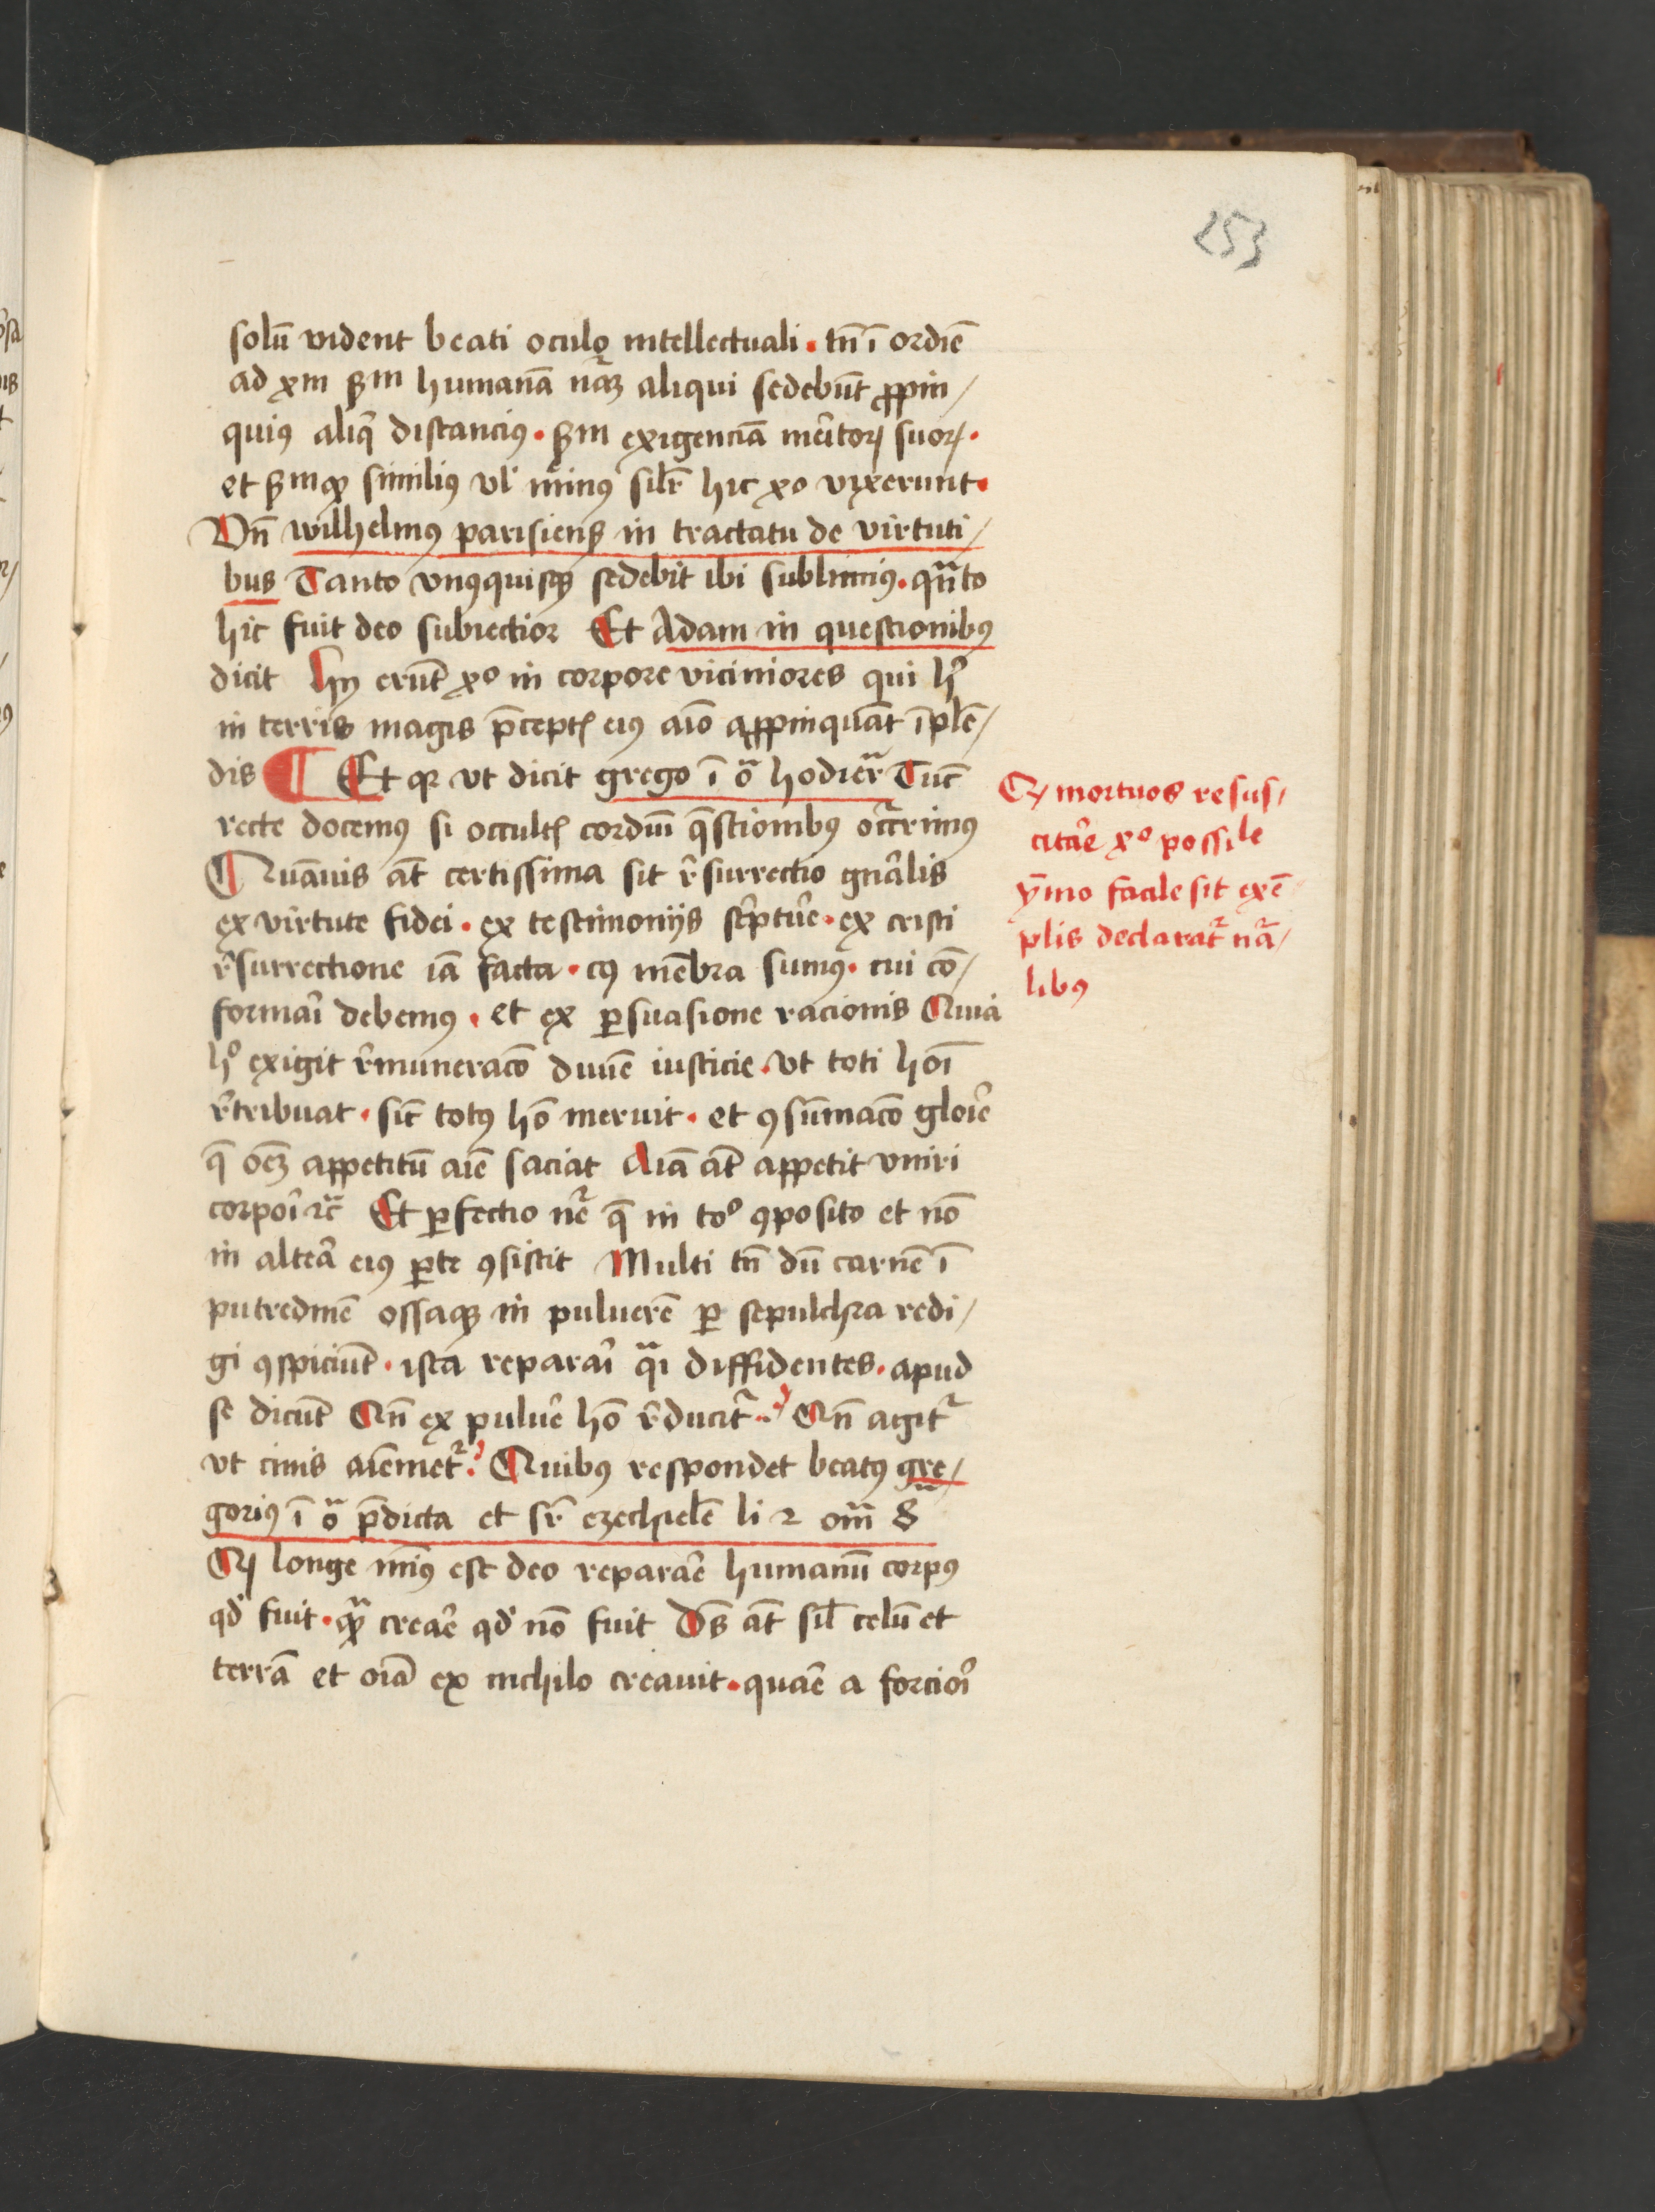 253
solū vident beati oculo intellectuali . tn̄ ī ordīe
ad xm̄ scd̄m humanā nāꝫ aliqui sedebūt ꝓpin/
quiꝰ aliqͥ distanciꝰ . scd̄m exigenciā meͥtoꝝ suoꝝ .
et scd̄m qꝫ similiꝰ vl' minꝰ silr̄ hic xº vixerunt .
Vn̄ wilhelmꝰ parisienß in tractatu de virtuti/
bus Tanto vnꝰquisqꝫ sedebit ibi sublimiꝰ . qn̄to
hic fuit deo subiectior Et Adam in questionibꝰ
dicit Hij erūt xº in corpore viciniores qui hͦ
in terris magis p̄ceptꝭ eiꝰ aīo aꝓpinquāt īplē/
dis ¶ Et qꝛ vt dicit grego ī oᷓ hodierᷓ Tūc
recte docemꝰ si occultꝭ cordiū q̄stionibꝰ occͬrimꝰ
Quāuis āt certissima sit r̄surrectio gnāl̄is
ex virtute fidei . ex testimonijs scͥptur̄e . ex cristi
r̄surrectione iā facta . cꝰ mēbra sumꝰ . cui cō/
formari̅ debemꝰ . et ex ꝑsuasione racionis Quia
hͦ exigit r̄muneracō diuīe iusticie . vt toti hoī
r̄tribuat . sic̄ totꝰ hō meruit . et ꝯsūmacō glorie̅
q̄ oēꝫ appetitū aīe saciat Aīa āt appetit vniri
corpori̅ ⁊c̄ Et ꝑfectio nr̄e q̄ in toͦ ꝯposito et nō
in altera̅ eiꝰ ꝑte ꝯsistit Multi tn̄ dū carnē ī
putredinē ossaqꝫ in puluerē ꝑ sepulchra redi/
gi ꝯspiciūt . ista reparari̅ qᷓi diffidentes . apud
se dicūt Qn̄ ex puluē hō r̄ducitᷣ .? Qn̄ agitᷣ
vt cinis aīemetᷣ ? Quibꝰ respondet beatꝰ gre/
goriꝰ ī oᷓ p̄dicta et sr̄ ezechielē li 2 om̄ 8
Qꝫ longe minꝰ est deo reparare̅ humanū corpꝰ
qd' fuit . qᷓꝫ creare̅ qd' nō fuit Ds̄ āt sil̄ celū et
terrā et oīa ex nichilo creauit . quare̅ a forciori̅
Qꝫ mortuos resus/
citare̅ xº possile
ymo facile sit exē
plis declaratᷣ nāͣ/
libꝰ